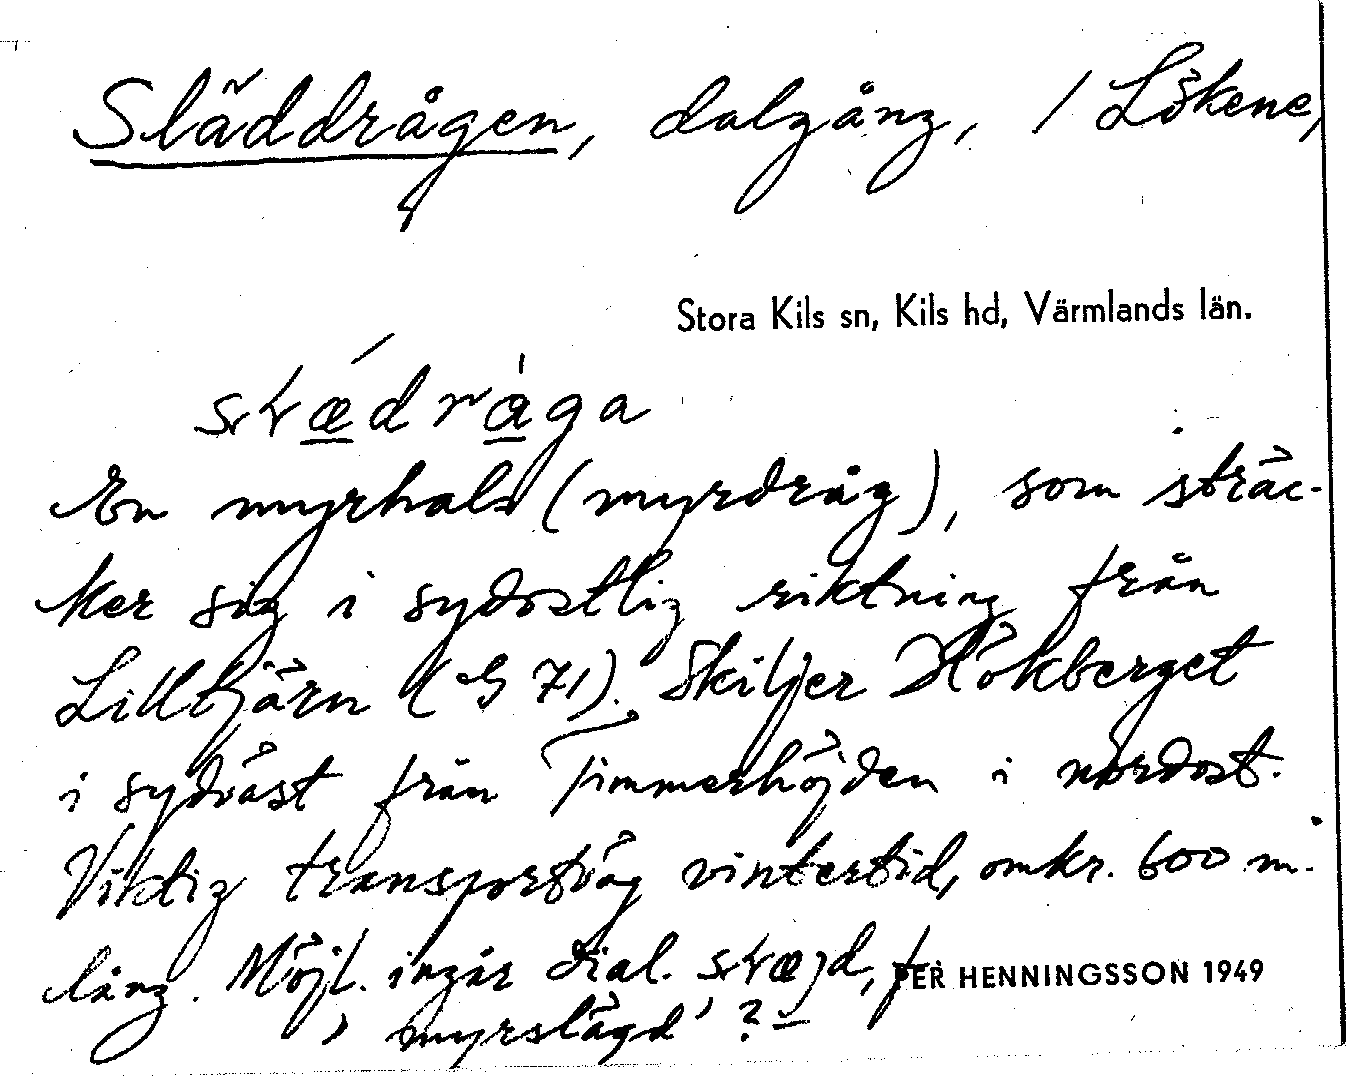 Släddrågen, dalgång, / Lökene,
Stora Kils sn, Kils hd, Värmlands län.
En myrhals (myrdråg), som sträc-
ker sig i sydostlig riktning från
Lilltjärn (G 71). Skiljer Hökberget
i sydväst från Timmerhöjden i nordost.
Viktig transportväg vintertid, omkr. 600 m.
lång. Möjl. ingår dial. f.
PER HENNINGSSON 1949
' myrslägd ' ?